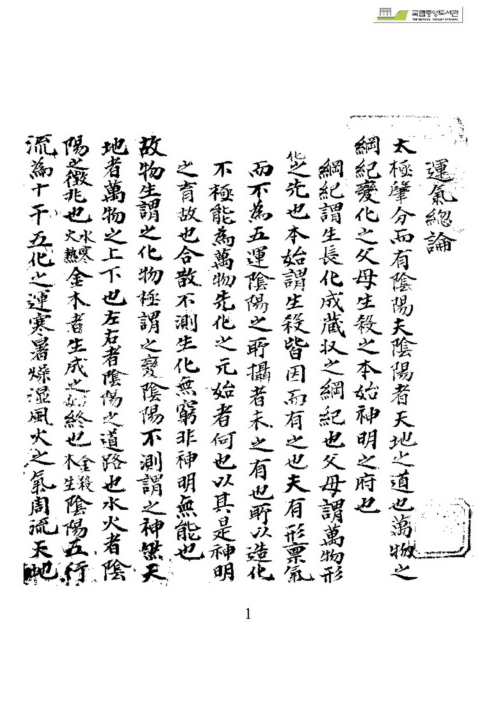 국립중앙도서관
運氣總論
太極肇分而有陰陽夫陰陽者天地之道也萬物之
綱紀變化之父母生殺之本始神明之府也
綱紀謂生長化成蔵収之綱紀也父母謂萬物形
化之先也本始謂生殺皆因而有之也夫有形禀氣
而不為五運陰陽之所攝者未之有也所以造化
不極能為萬物先化之元始者何也以其是神明
之育故也合散不測生化無窮非神明無能也
故物生謂之化物極謂之變陰陽不測謂之神 天
地者萬物之上下也左右者陰陽之道路也水火者陰
陽之徴兆也水寒火熱金木者生成之終也金殺木生陰陽五行
流為十干五化之運寒暑燥湿風火之氣周流天地
1